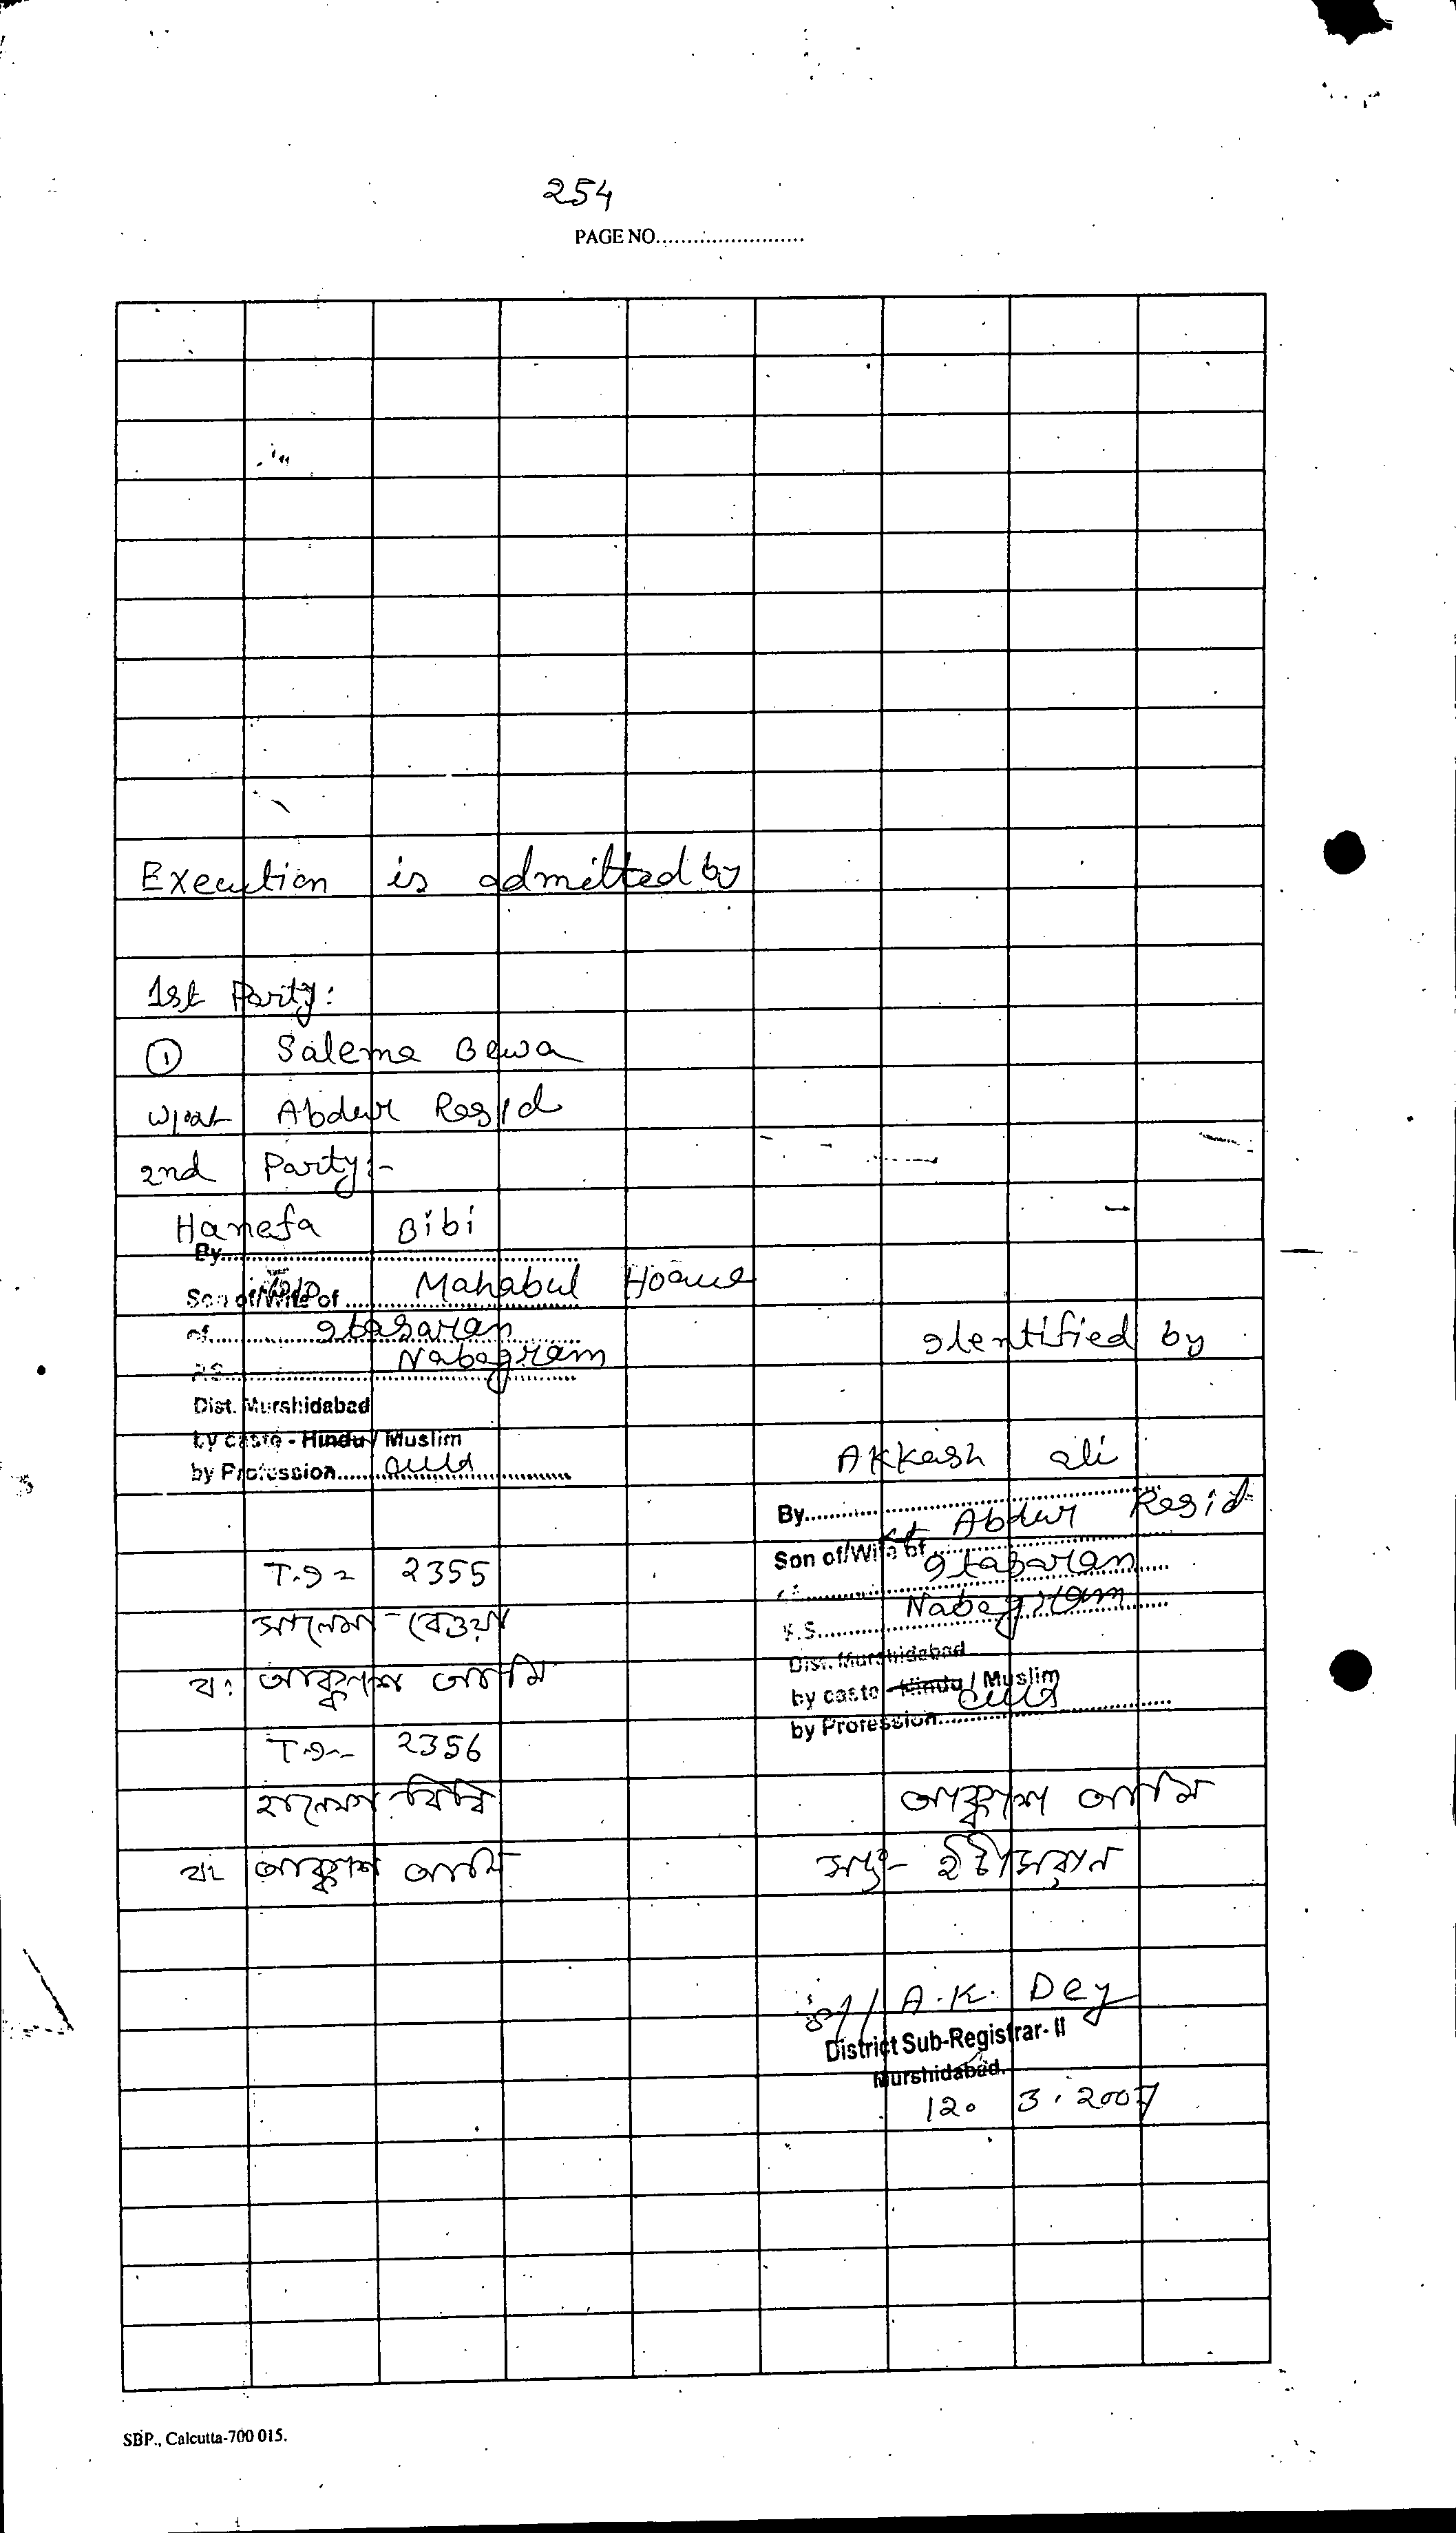 254
PAGE NO........................
Execution is admitted by
1st Party:
① Salema Bewa
W/oat Abdur Rasid
2nd Party:-
Hanefa Bibi
By
Son of/Wife of Mahabul Hoque
of Itasaran
P.S. Nabagram
Dist. Murshidabad
by caste - Hindu / Muslim
by Profession
T.I- 2355
সালেমা বেওয়া
বঃ আক্কাশ আলি
T.I- 2356
হানেফা বিবি
বঃ আক্কাশ আলি
Identified by
Akkash Ali
By
Son of/Wife of Lt Abdur Rasid
of Itasaran
P.S. Nabagram
Dist. Murshidabad
by caste - Hindu / Muslim
by Profession
আক্কাশ আলি
সাং- ইটাসরান
Sd/ A.K. Dey
District Sub-Registrar- II
Murshidabad.
12. 3. 2007
SBP., Calcutta-700 015.